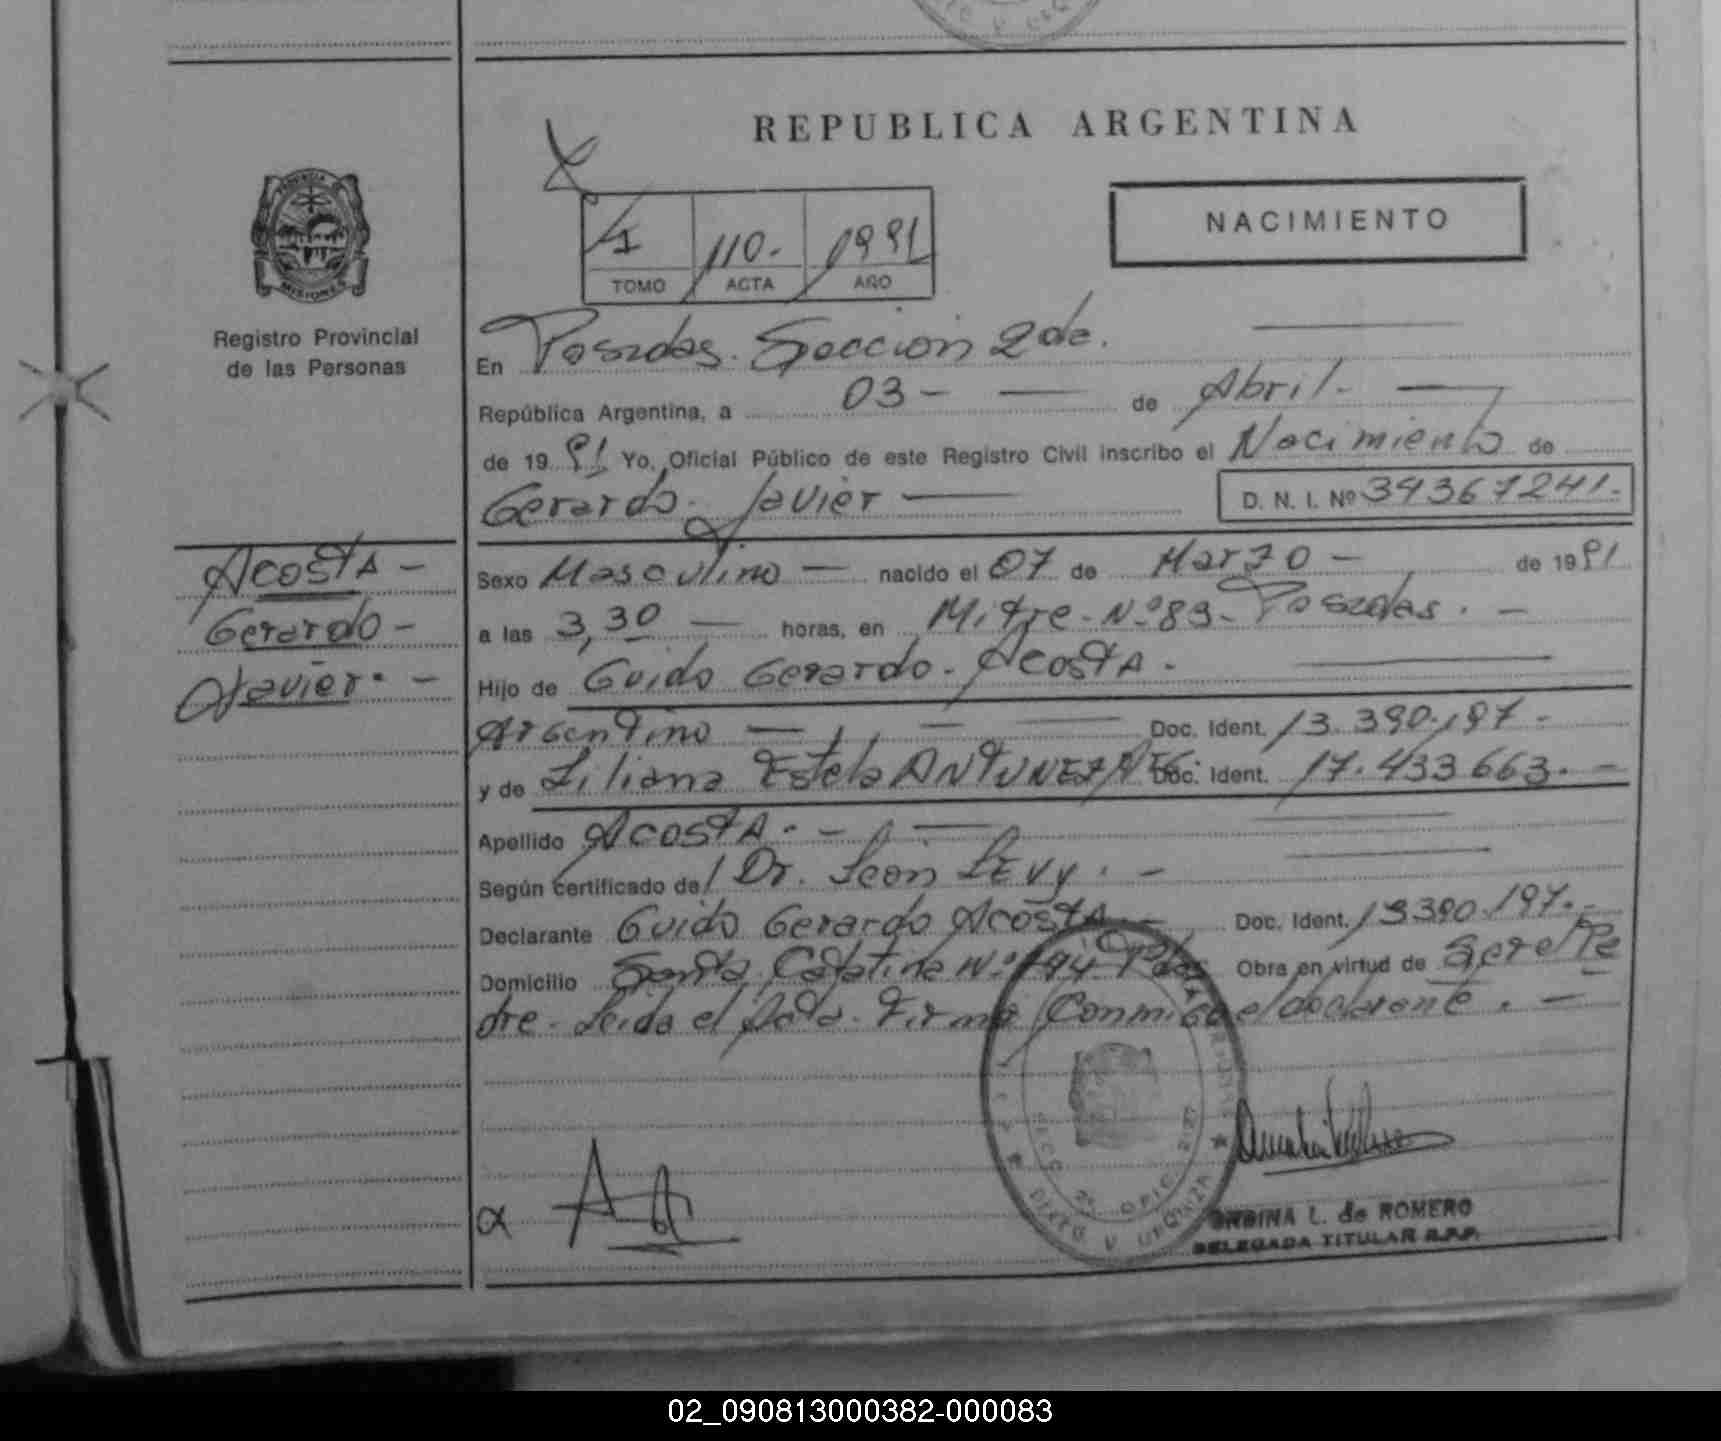 REPUBLICA ARGENTINA
NACIMIENTO
1 110. 1991
TOMO ACTA AÑO
PROVINCIA DE
MISIONES
Registro Provincial
de las Personas
En Posadas. Seccion 2da.
República Argentina, a 03 - de Abril -
de 1991 Yo, Oficial Público de este Registro Civil inscribo el Nacimiento de
Gerardo Javier — D. N. I. Nº 34367241.
Acosta -
Gerardo -
Javier. -
Sexo Masculino — nacido el 07 de Marzo - de 1991
a las 3,30 — horas, en Mitre - Nº 83 - Posadas. -
Hijo de Guido Gerardo. Acosta.
Argentino — Doc. Ident. 13.390.197 -
y de Liliana Estela ANTUNEZ Doc. Ident. 17.433663. -
Apellido Acosta. -
Según certificado de Dr. Leon Levy. -
Declarante Guido Gerardo Acosta - Doc. Ident. 13390.197. -
Domicilio Santa Catalina Nº Obra en virtud de ser el Pa
dre. Leida el Acta. Firma Conmigo el declarante. -
SECC. 2ª
L. de ROMERO
DELEGADA TITULAR R.P.P.
02_090813000382-000083